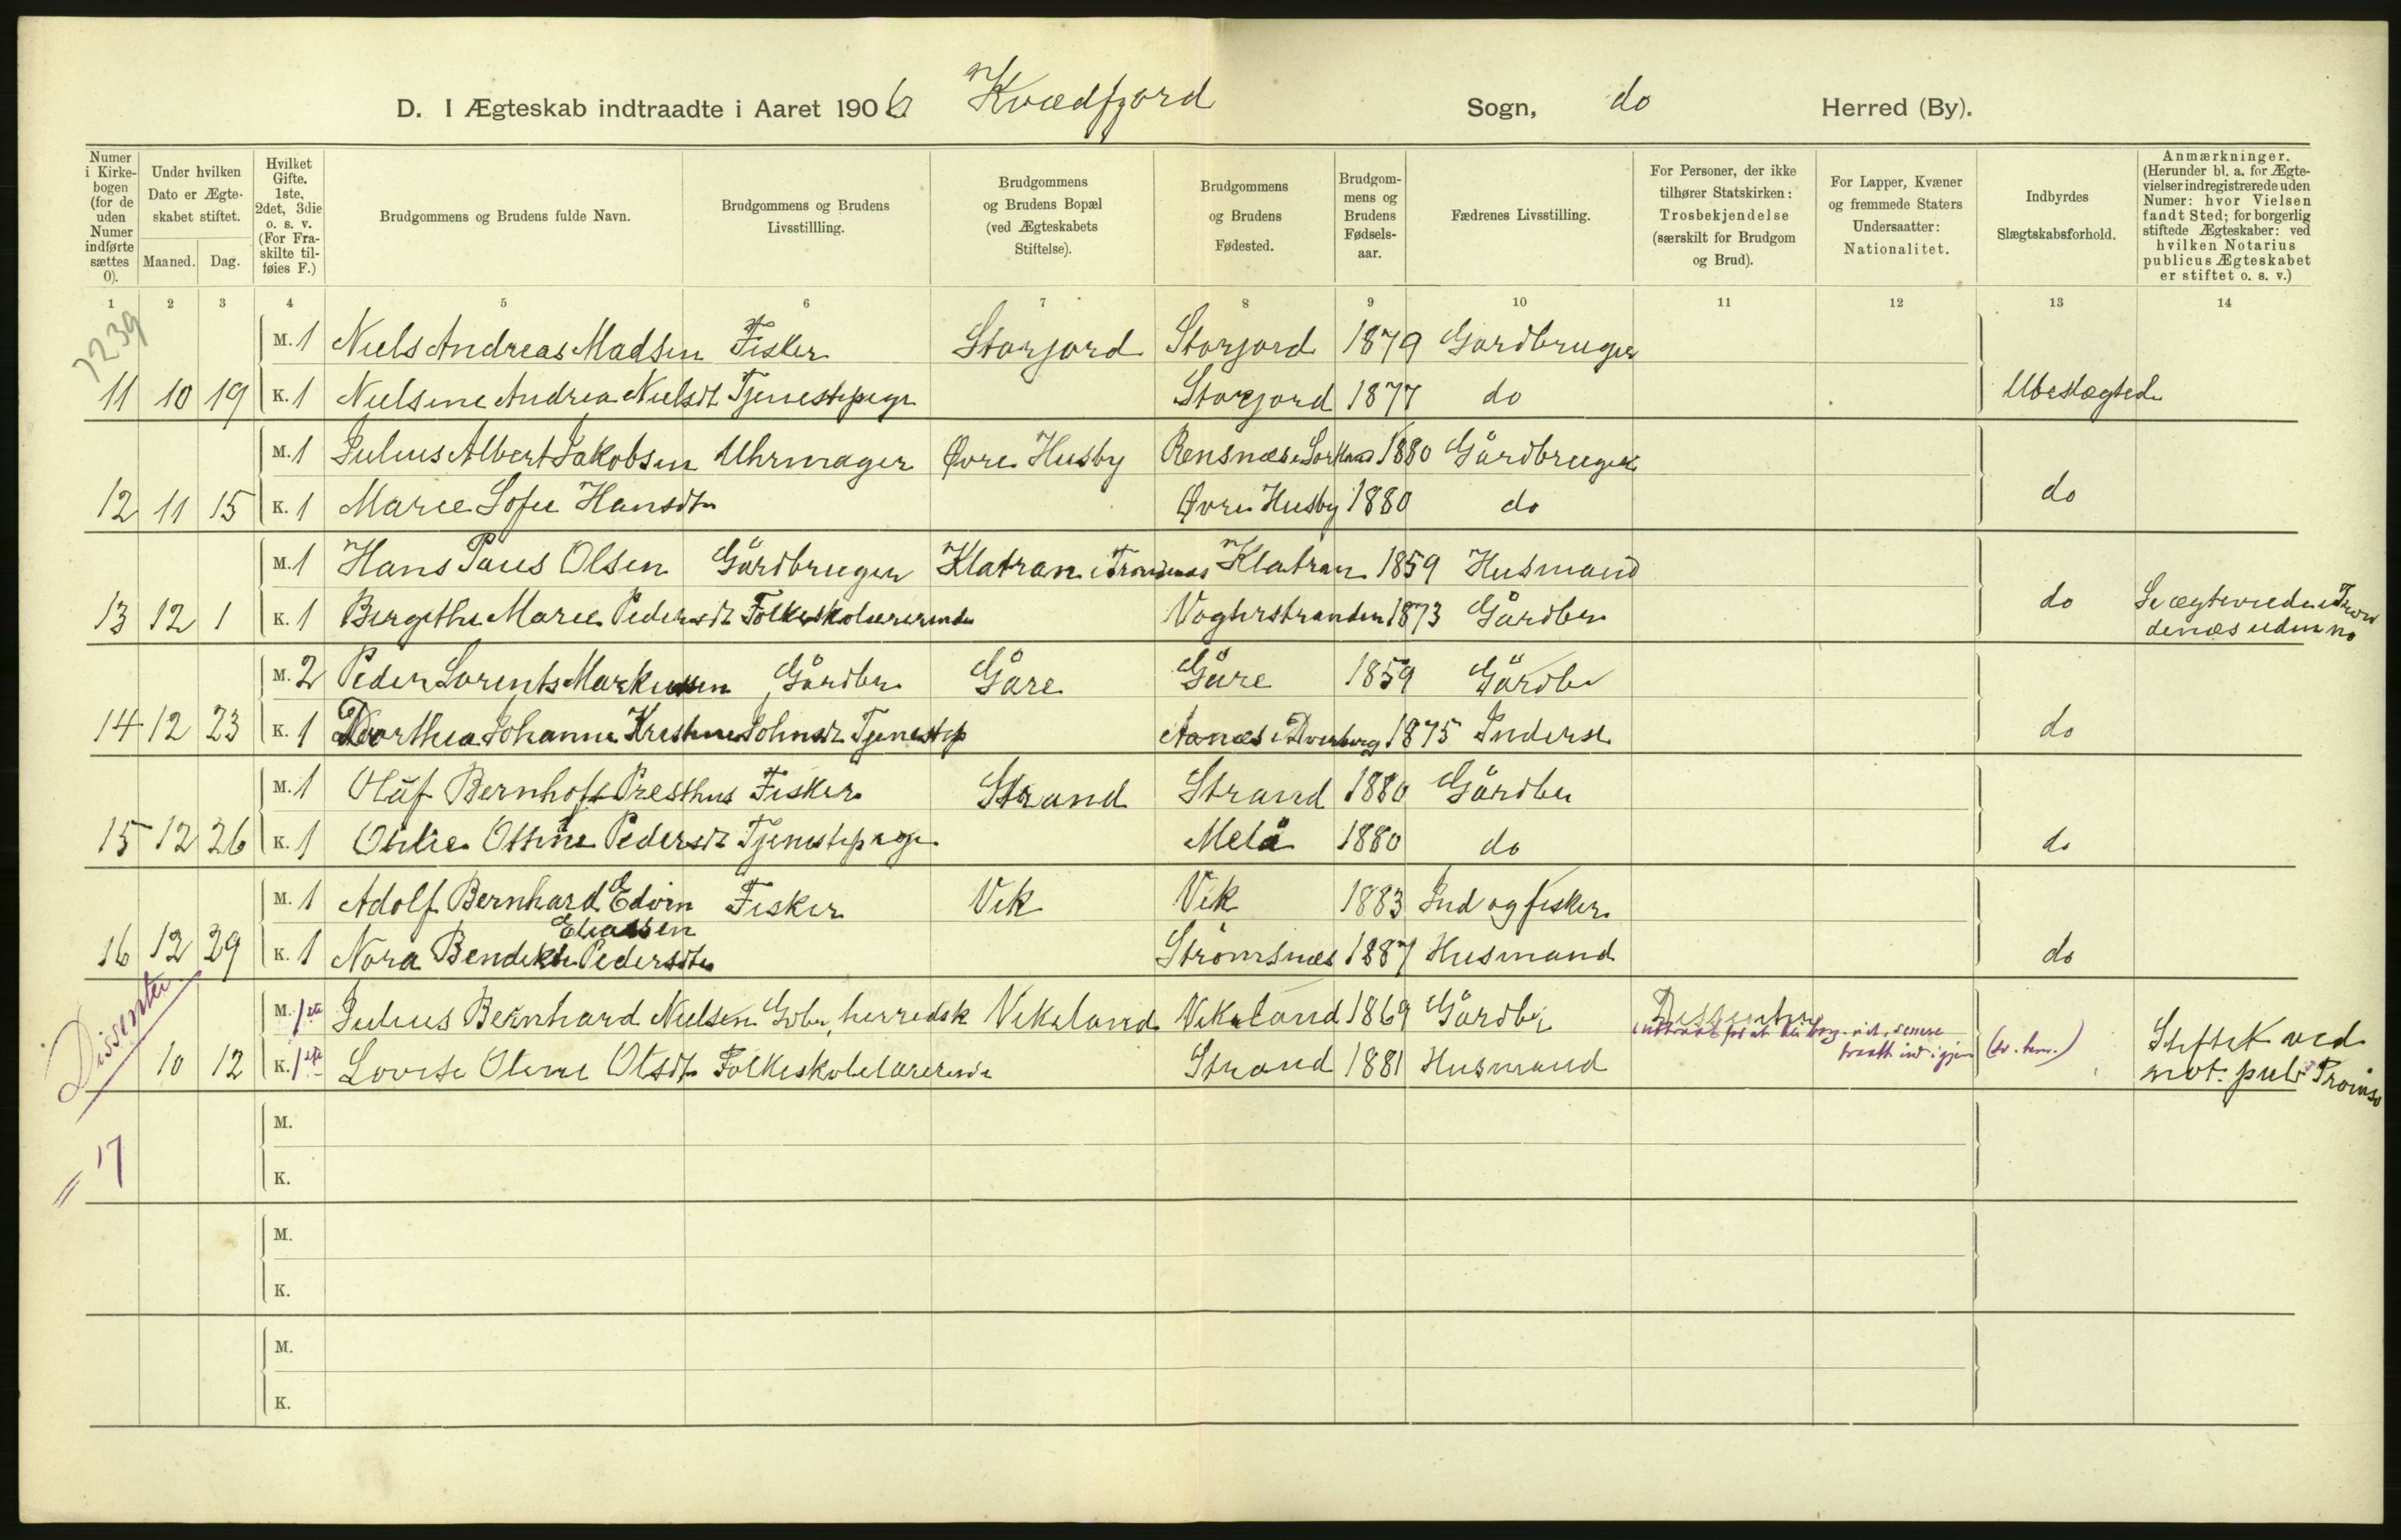 D. I Ægteskab indtraadte i Aaret 1906. Kvædfjord Sogn, do Herred (By).
Numer i Kirkebogen (for de uden Numer indførte sættes 0).
Under hvilken Dato er Ægteskabet stiftet.
Maaned. Dag.
Hvilket Gifte. 1ste, 2det, 3die o. s. v. (For Fraskilte tilføies F.)
Brudgommens og Brudens fulde Navn.
Brudgommens og Brudens Livsstillling.
Brudgommens og Brudens Bopæl (ved Ægteskabets Stiftelse).
Brudgommens og Brudens Fødested.
Brudgommens og Brudens Fødselsaar.
Fædrenes Livsstilling.
For Personer, der ikke tilhører Statskirken: Trosbekjendelse (særskilt for Brudgom og Brud).
For Lapper, Kvæner og fremmede Staters Undersaatter: Nationalitet.
Indbyrdes Slægtskabsforhold.
Anmærkninger. (Herunder bl. a. for Ægtevielser indregistrerede uden Numer: hvor Vielsen fandt Sted; for borgerlig stiftede Ægteskaber: ved hvilken Notarius publicus Ægteskabet er stiftet o. s. v.)
1 2 3 4 5 6 7 8 9 10 11 12 13 14
7239
M. 1 Niels Andreas Madsen Fisker Storjord Storjord 1879 Gardbruger
11 10 19 K. 1 Nielsine Andrea Nielsdt Tjenestepige Storjord 1877 do Ubeslægtede
M. 1 Julius Albert Jakobsen Uhrmager Øvre Husby Rensnæs i 1880 Gårdbruger
12 11 15 K. 1 Marie Sofie Hansdtr Øvre Husby 1880 do do
M. 1 Hans Paus Olsen Gårdbruger Klatran i Trondenæs Klatran 1859 Husmand
13 12 1 K. 1 Bergithe Marie Pedersdt Folkeskolelærerinde Vogterstranden 1873 Gårdbr do Se ægteviede i Tron
denæs uden no
M. 2 Peder Lorents Markussen Gårdbr Gåre Gåre 1859 Gårdbr
14 12 23 K. 1 Dorthea Johanne Kristine Johnsdt Tjenestep Aanæs i Dverberg 1875 Inderst do
M. 1 Oluf Bernhoft Presthus Fisker Strand Strand 1880 Gårdbr
15 12 26 K. 1 Otilie Ottine Pedersdt Tjenestepige Melå 1880 do do
M. 1 Adolf Bernhard Edvin Fisker Vik Vik 1883 Ind og fisker
Eliassen
16 12 29 K. 1 Nora Bendikte Pedersdtr Strømsnæs 1887 Husmand do
Dissenter
M. 1ste Julius Bernhard Nielsen Gbr, herredsk Vikeland Vikeland 1869 Gårdbr Dissenter
indtraadt for at bli borg. viet, senere
traadt ind igjen
10 12 K. 1ste Lovise Oline Olsdt Folkeskolelærerinde Strand 1881 Husmand Stiftet ved
not. publ Tromsø
= 17
M.
K.
M.
K.
M.
K.